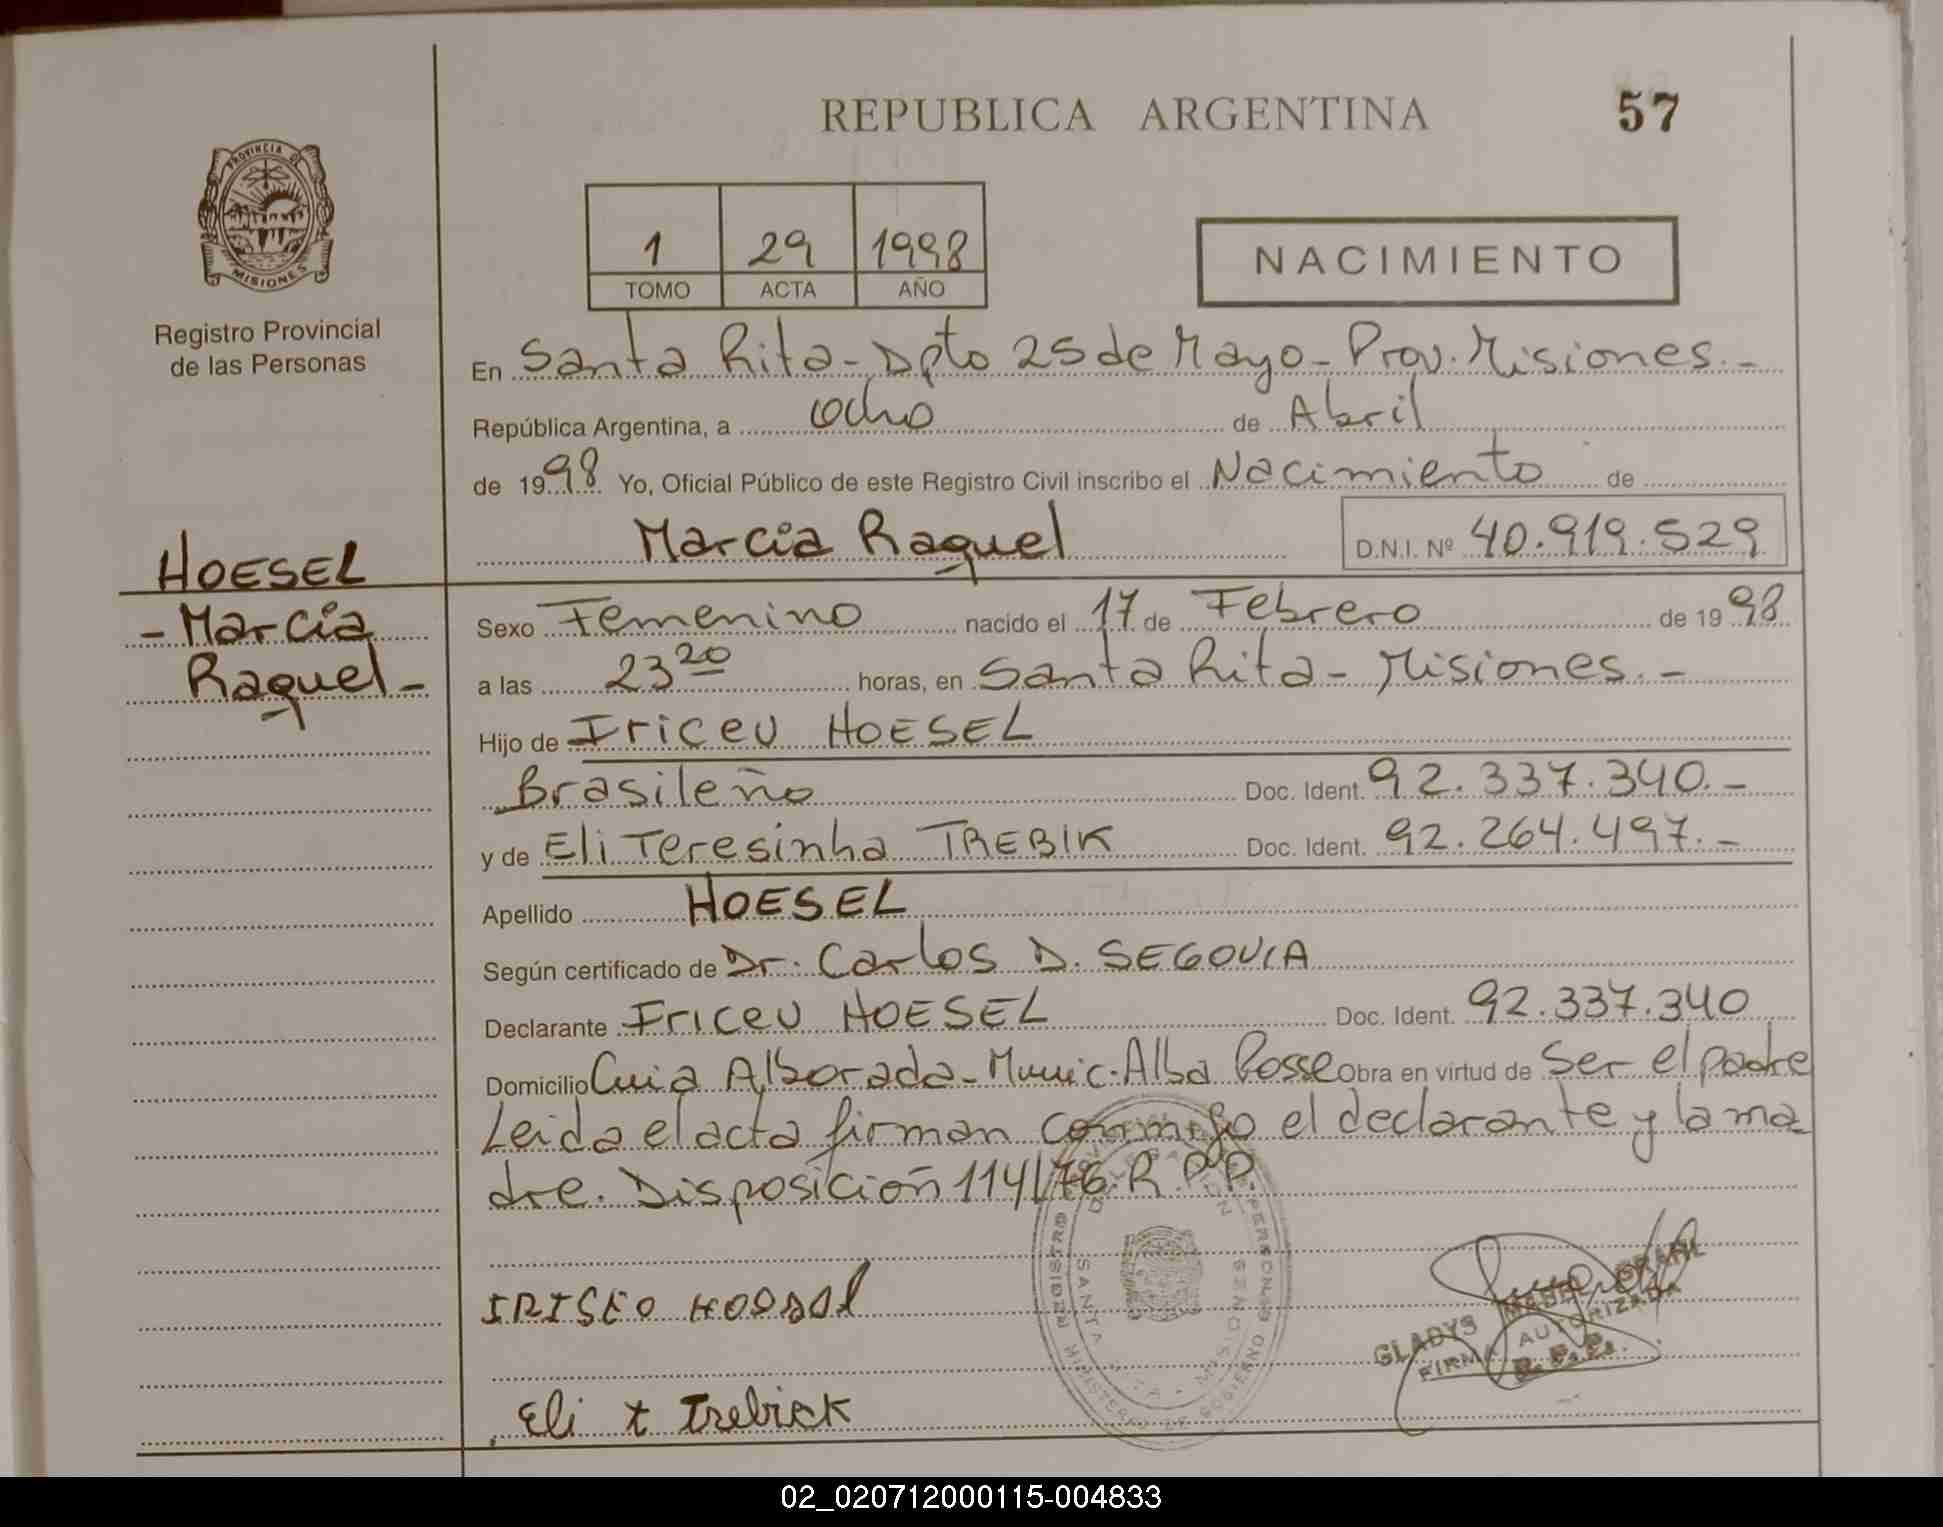 REPUBLICA ARGENTINA
57
PROVINCIA DE
MISIONES
Registro Provincial
de las Personas
1 29 1998
TOMO ACTA AÑO
NACIMIENTO
En Santa Rita - Dpto 25 de Mayo - Prov. Misiones. -
República Argentina, a ocho de Abril
de 1998 Yo, Oficial Público de este Registro Civil inscribo el Nacimiento de
Marcia Raquel D.N.I. Nº 40.919.529
HOESEL
- Marcia
Raquel -
Sexo Femenino nacido el 17 de Febrero de 1998
a las 23 20 horas, en Santa Rita - Misiones. -
Hijo de Iriceu HOESEL
Brasileño Doc. Ident. 92.337.340. -
y de Eli Teresinha TREBIK Doc. Ident. 92.264.497. -
Apellido HOESEL
Según certificado de Dr. Carlos D. SEGOVIA
Declarante Iriceu HOESEL Doc. Ident. 92.337.340
Domicilio Cuia Alborada - Munic. Alba Posse Obra en virtud de Ser el padre
Leida el acta firman conmigo el declarante y la ma
dre. Disposición 114/76. R.P.P.
IRISEO HOESEL
Eli t Trebick
GLADYS MABEL
FIRMA AUTORIZADA
R. P. P.
02_020712000115-004833